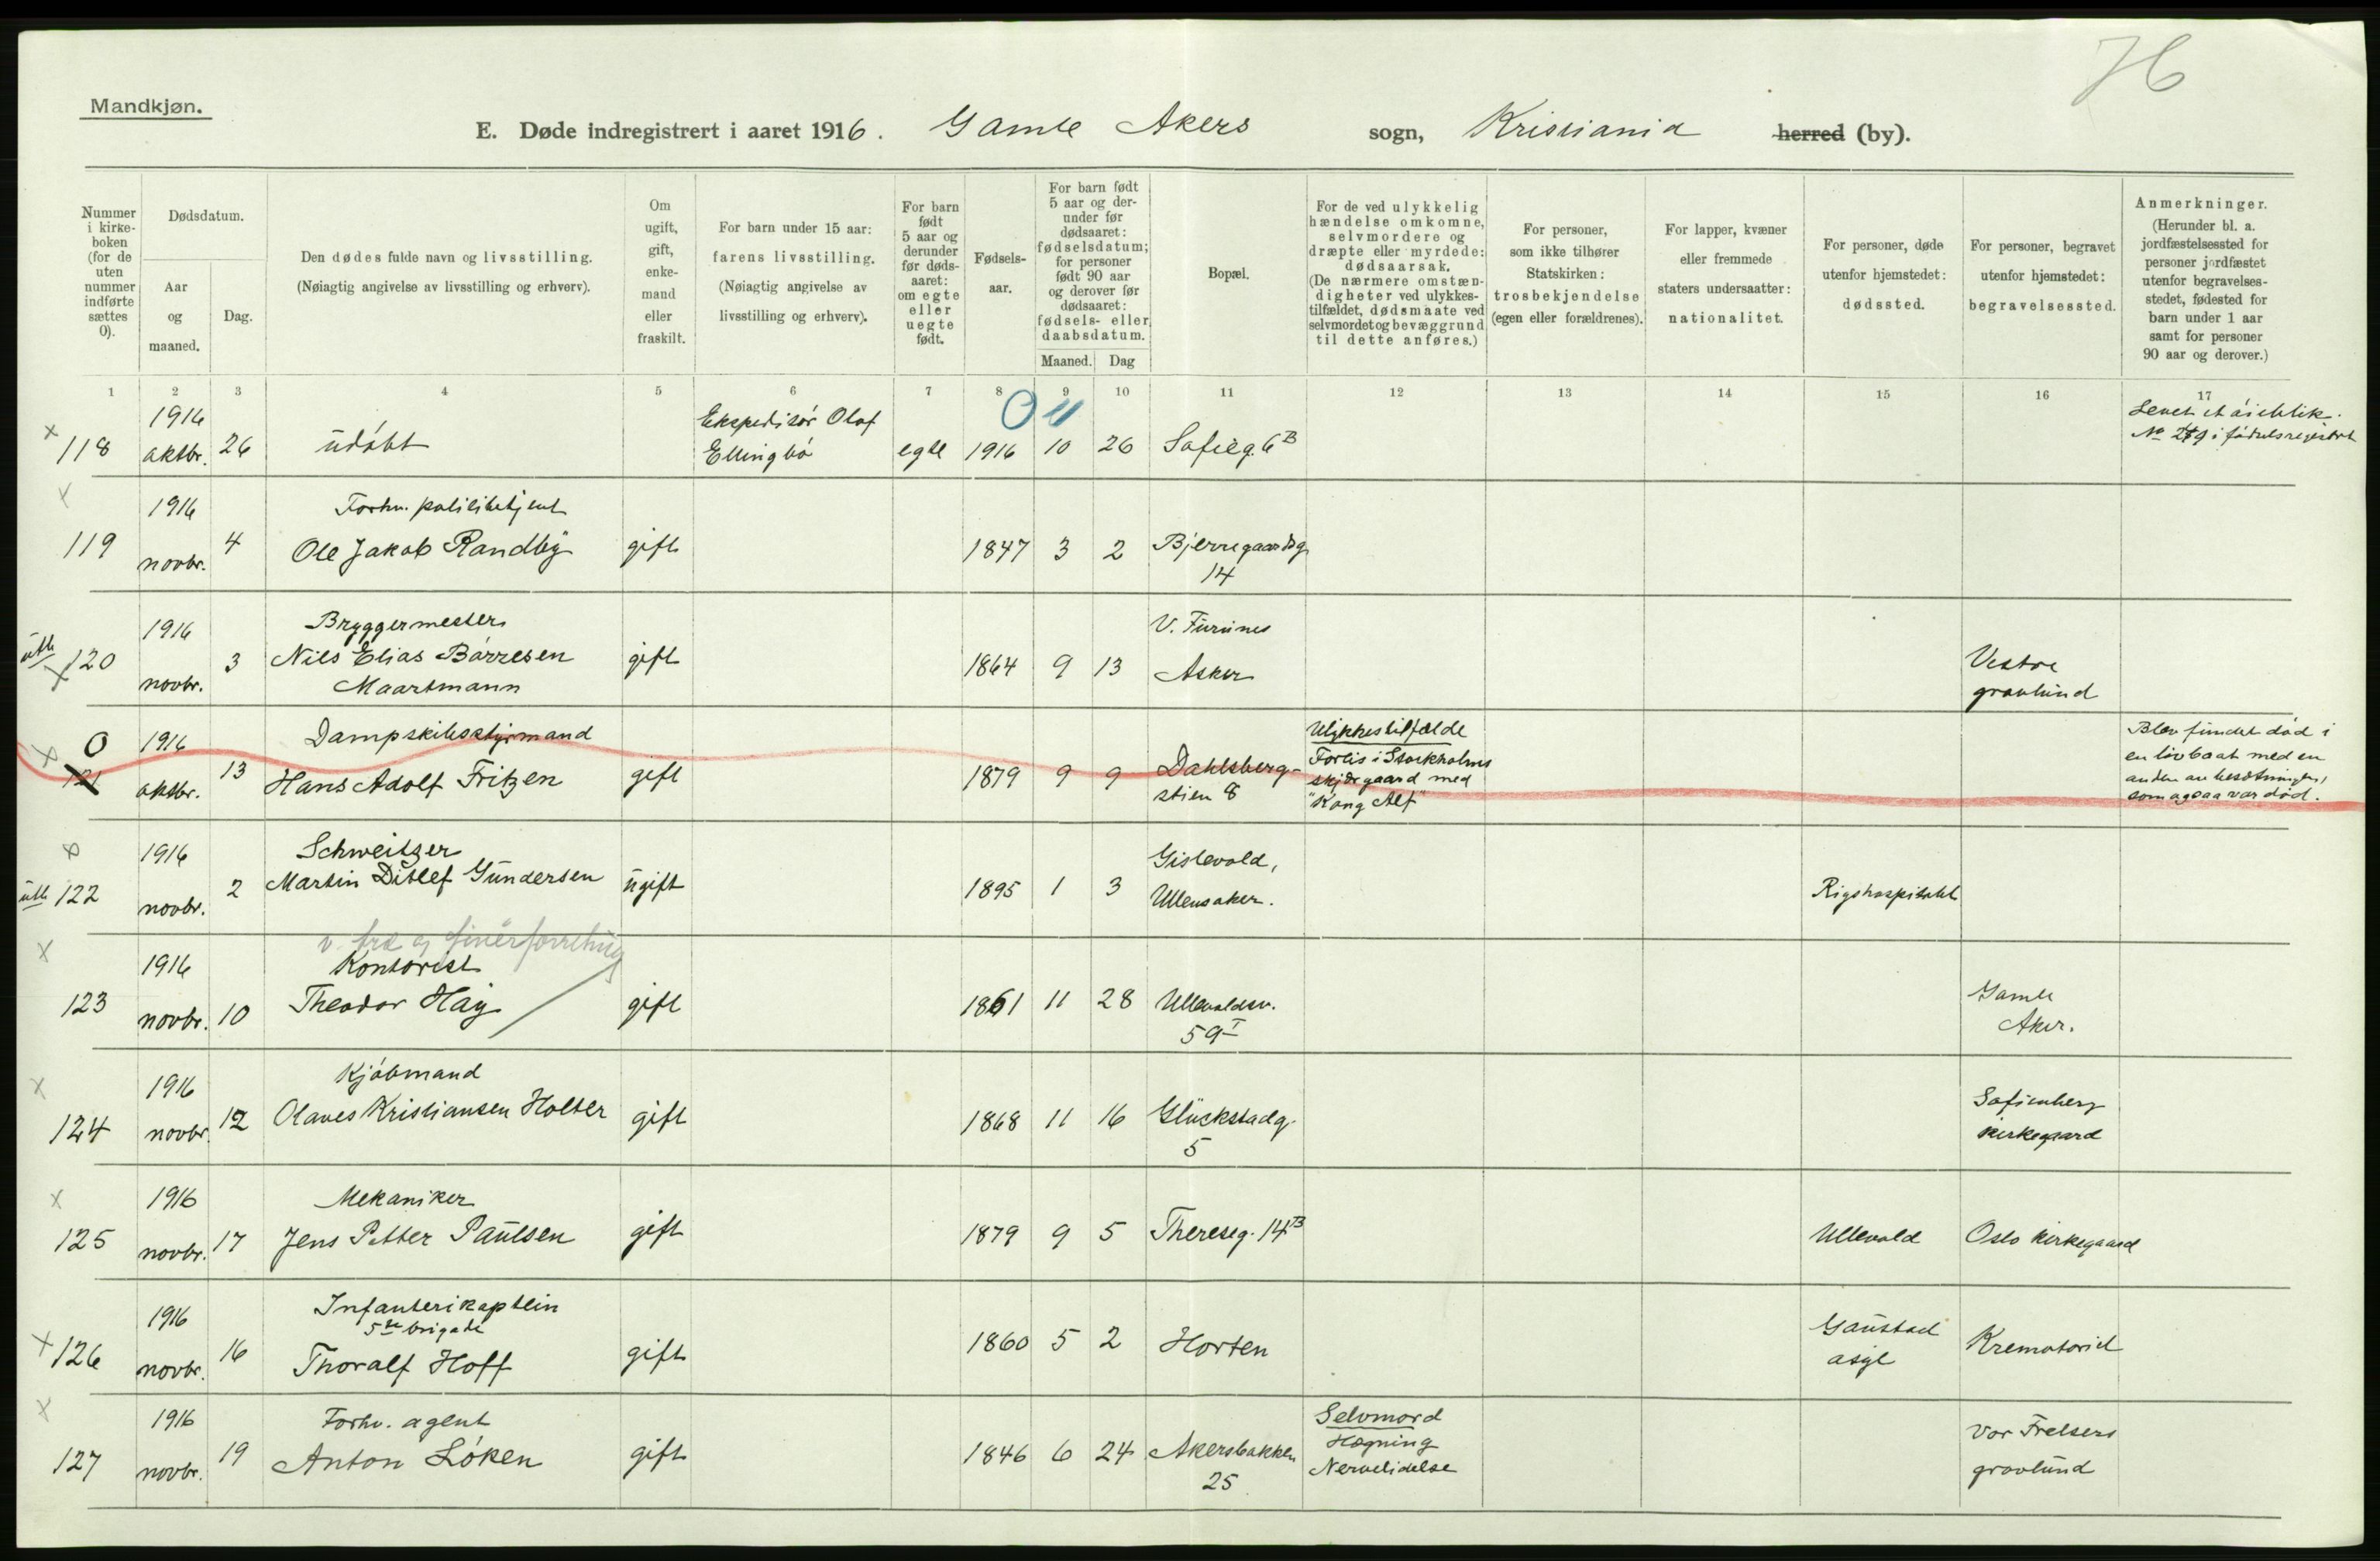 76
Mandkjøn.
E. Døde indregistrert i aaret 1916. Gamle Akers sogn, Kristiania herred (by).
Nummer i kirke-boken (for de uten nummer indførte sættes 0).
Dødsdatum.
Aar og maaned.
Dag.
Den dødes fulde navn og livsstilling.
(Nøiagtig angivelse av livsstilling og erhverv).
Om ugift, gift, enke-mand eller fraskilt.
For barn under 15 aar: farens livsstilling.
(Nøiagtig angivelse av livsstilling og erhverv).
For barn født 5 aar og derunder før døds-aaret: om egte eller uegte født.
Fødsels-aar.
For barn født 5 aar og der-under før dødsaaret: fødselsdatum; for personer født 90 aar og derover før dødsaaret: fødsels- eller daabsdatum.
Maaned. Dag
Bopæl.
For de ved ulykkelig hændelse omkomne, selvmordere og dræpte eller myrdede: dødsaarsak.
(De nærmere omstæn-digheter ved ulykkes-tilfældet, dødsmaate ved selvmordet og bevæggrund til dette anføres.)
For personer, som ikke tilhører Statskirken: trosbekjendelse (egen eller forældrenes).
For lapper, kvæner eller fremmede staters undersaatter: nationalitet.
For personer, døde utenfor hjemstedet: dødssted.
For personer, begravet utenfor hjemstedet: begravelsessted.
Anmerkninger.
(Herunder bl. a. jordfæstelsessted for personer jordfæstet utenfor begravelses-stedet, fødested for barn under 1 aar samt for personer 90 aar og derover.)
1 2 3 4 5 6 7 8 9 10 11 12 13 14 15 16 17
1916 Ekspeditør Olaf Levet et øieblik.
118 oktbr. 26 udøbt Ellingbø egte 1916 10 26 Sofieg. 6B No i fødselsregistret
1916 Forhv. politibetjent
119 novbr. 4 Ole Jakob Randby gift 1847 3 2 Bjerregaardsg.
14
1916 Bryggermester V. Furunes
120 novbr. 3 Nils Elias Børresen gift 1864 9 13 Asker Vestre
Maartmann gravlund
0 1916 Dampskibsstyrmand Ulykkestilfælde Blev fundet død i
121 oktbr. 13 Hans Adolf Fritzen gift 1879 9 9 Dahlsberg- Forlis i Stockholms en livbaat med en
stien 8 skjærgaard med anden av besætningen,
"Kong Alf" som ogsaa var død.
1916 Schweitzer Gislevold,
utb 122 novbr. 2 Martin Ditlef Gundersen ugift 1895 1 3 Ullensaker. Rigshospitalet
v. træ og finérforretning
1916 Kontorist
123 novbr. 10 Theodor Høy gift 1861 11 28 Ullevoldsv. Gamle
59 I Aker.
1916 Kjøbmand
124 novbr. 12 Olaves Kristiansen Holter gift 1868 11 16 Glückstadg. Sofienberg
5 kirkegaard
1916 Mekaniker
125 novbr. 17 Jens Petter Paulsen gift 1879 9 5 Thereseg. 14B Ullevold Oslo kirkegaard
1916 Infanterikaptein
5te brigade Gaustad
126 novbr. 16 Thoralf Hoff gift 1860 5 2 Horten asyl Krematoriet
1916 Forhv. agent Selvmord Vor Frelsers
127 novbr. 19 Anton Løken gift 1846 6 24 Akersbakken Hægning gravlund
25 Nervelidelse